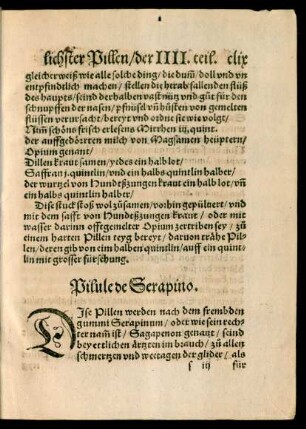 lichster Pillen/der IIII. teil. clix
gleicher weiß wie alle solche ding/die dum̃/doll vnd vn
entpfindtlich machen/stellen die herab fallenden flüß
des haupts/seind derhalben vast nütz vnd gůt für den
schnupffen der nasen/pfnüsel vñ hůsten von gemelten
flüssen verursacht/bereyt vnd ordne sie wie volgt/
Nim̃ schöns frisch erlesens Mirrhen iij. quint.
der auffgedörrten milch von Magsamen heüptern/
Opium genant/
Dillen kraut samen/ yedes ein halb lot/
Saffran j. quintlin/vnd ein halbs quintlin halber/
der wurtzel von Hundtßzungen kraut ein halb lot/vñ
ein halbs quintlin halber/
Dise stuck stoß wol zůsamen/vorhin gepülvert/vnd
mit dem safft von Hundtßzungen kraut/ oder mit
wasser darinn offtgemelter Opium zertriben sey/ zů
einem harten Pillen teyg bereyt/daruon trähe Pil-
len/deren gib von eim halben quintlin/auff ein quint-
lin mit grosser fürsehung.
Pilule de Serapino.
DIse Pillen werden nach dem frembden
gummi Serapinum/ oder wie sein rech-
ter nam̃ ist/ Sagapenon genant/ seind
bey ettlichen ärtzten im brauch/ zů allen
schmertzen vnd weetagen der glider/ als
s iij für